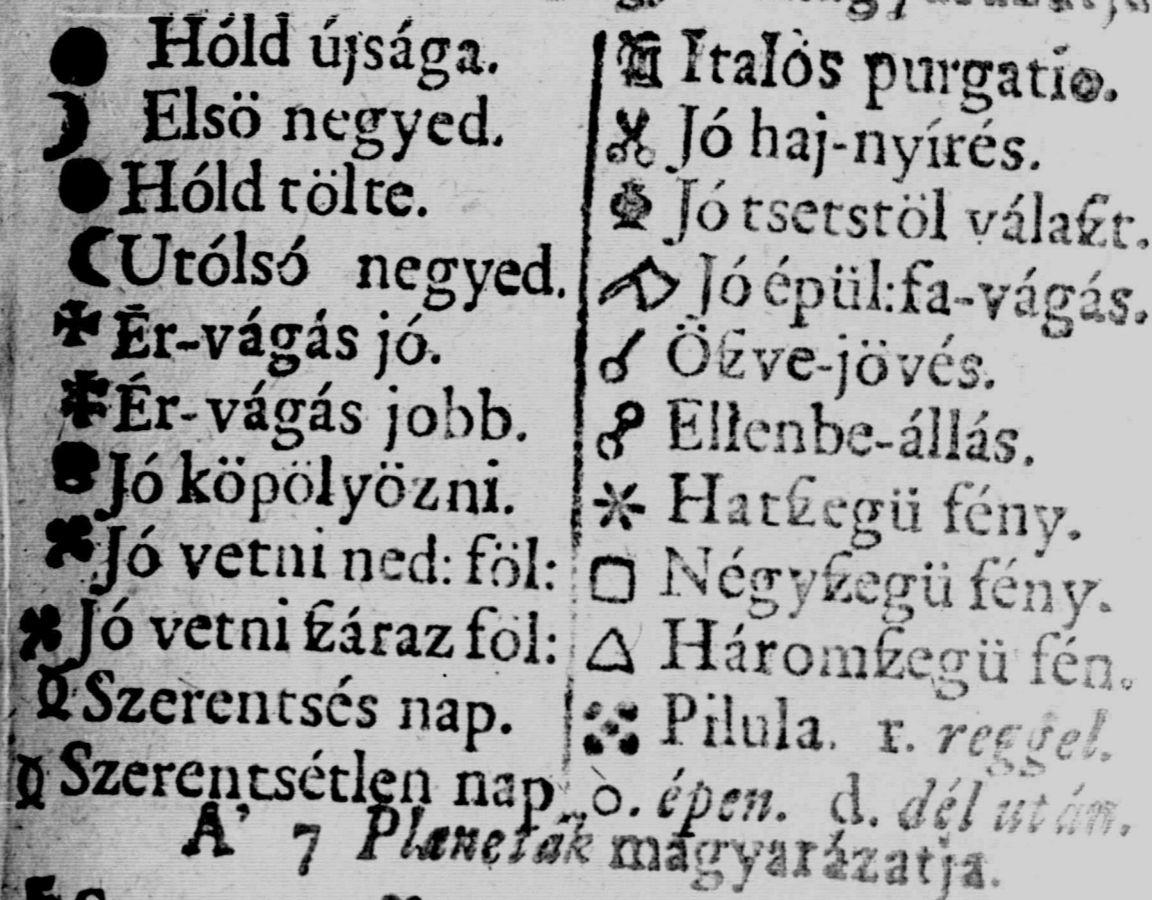 Hóld újsága.
Elsö negyed.
Hóld tölte.
Utólsó negyed.
Ér-vágás jó.
Ér-vágás jobb.
Jó köpölyözni.
Jó vetni ned: föl:
Jó vetni ſzáraz föl:
Szerentsés nap.
Szerentsétlen nap.
Italos purgatio.
Jó haj-nyírés.
Jó tsetstöl válaſzt.
Jó épül: fa-vágás.
☌ Öſzve-jövés.
☍ Ellenbe-állás.
Hatſzegü fény.
□ Négyſzegü fény.
△ Háromſzegü fén.
Pilula. r. reggel.
ò. épen. d. dél után.
A' 7 Planeták magyarázatja.